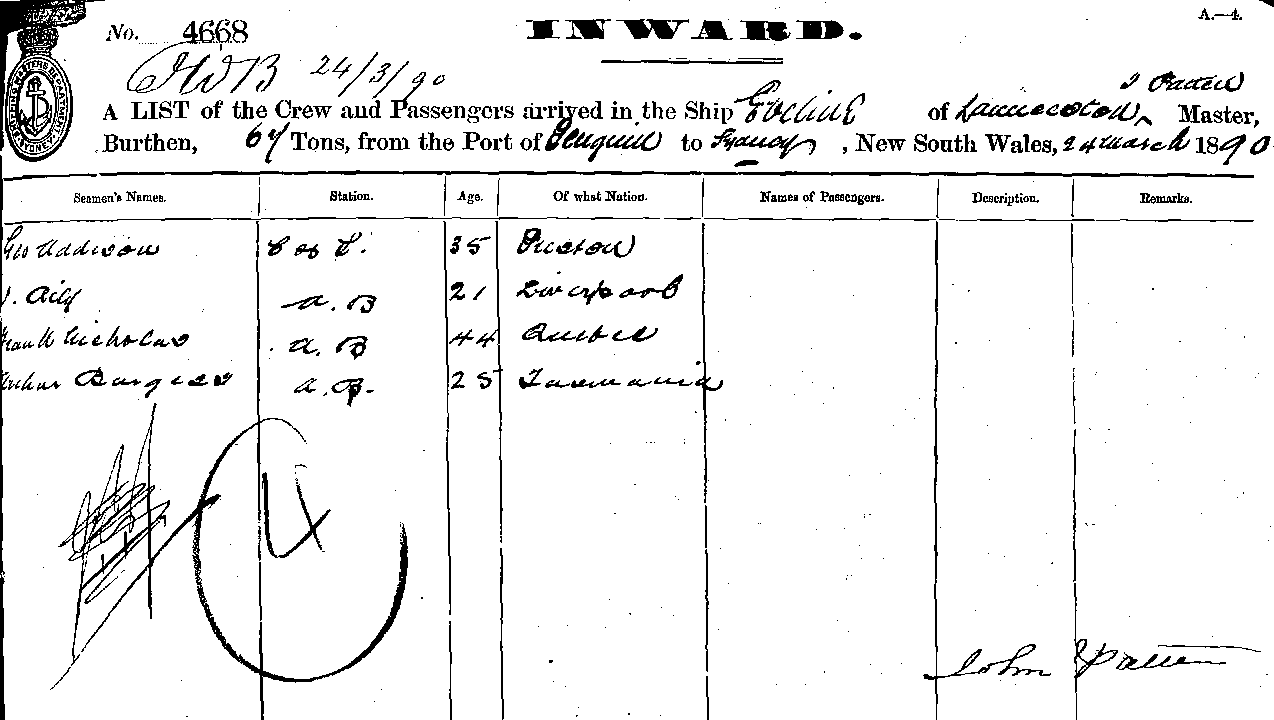 No. 4668 INWARD. A.—4.
JWB 24/3/90
J Patten
A LIST of the Crew and Passengers arrived in the Ship Eveline of Launceston, Master,
Burthen, 67 Tons, from the Port of Penguin to Sydney, New South Wales, 24 March 1890
Seamen's Names. Station. Age. Of what Nation. Names of Passengers. Description. Remarks.
Geo Addison 35 Preston
A.B 21 Liverpool
Frank Nicholas A.B 44 Quebec
Arthur Burgess A.B. 25 Tasmania
4
John Patten